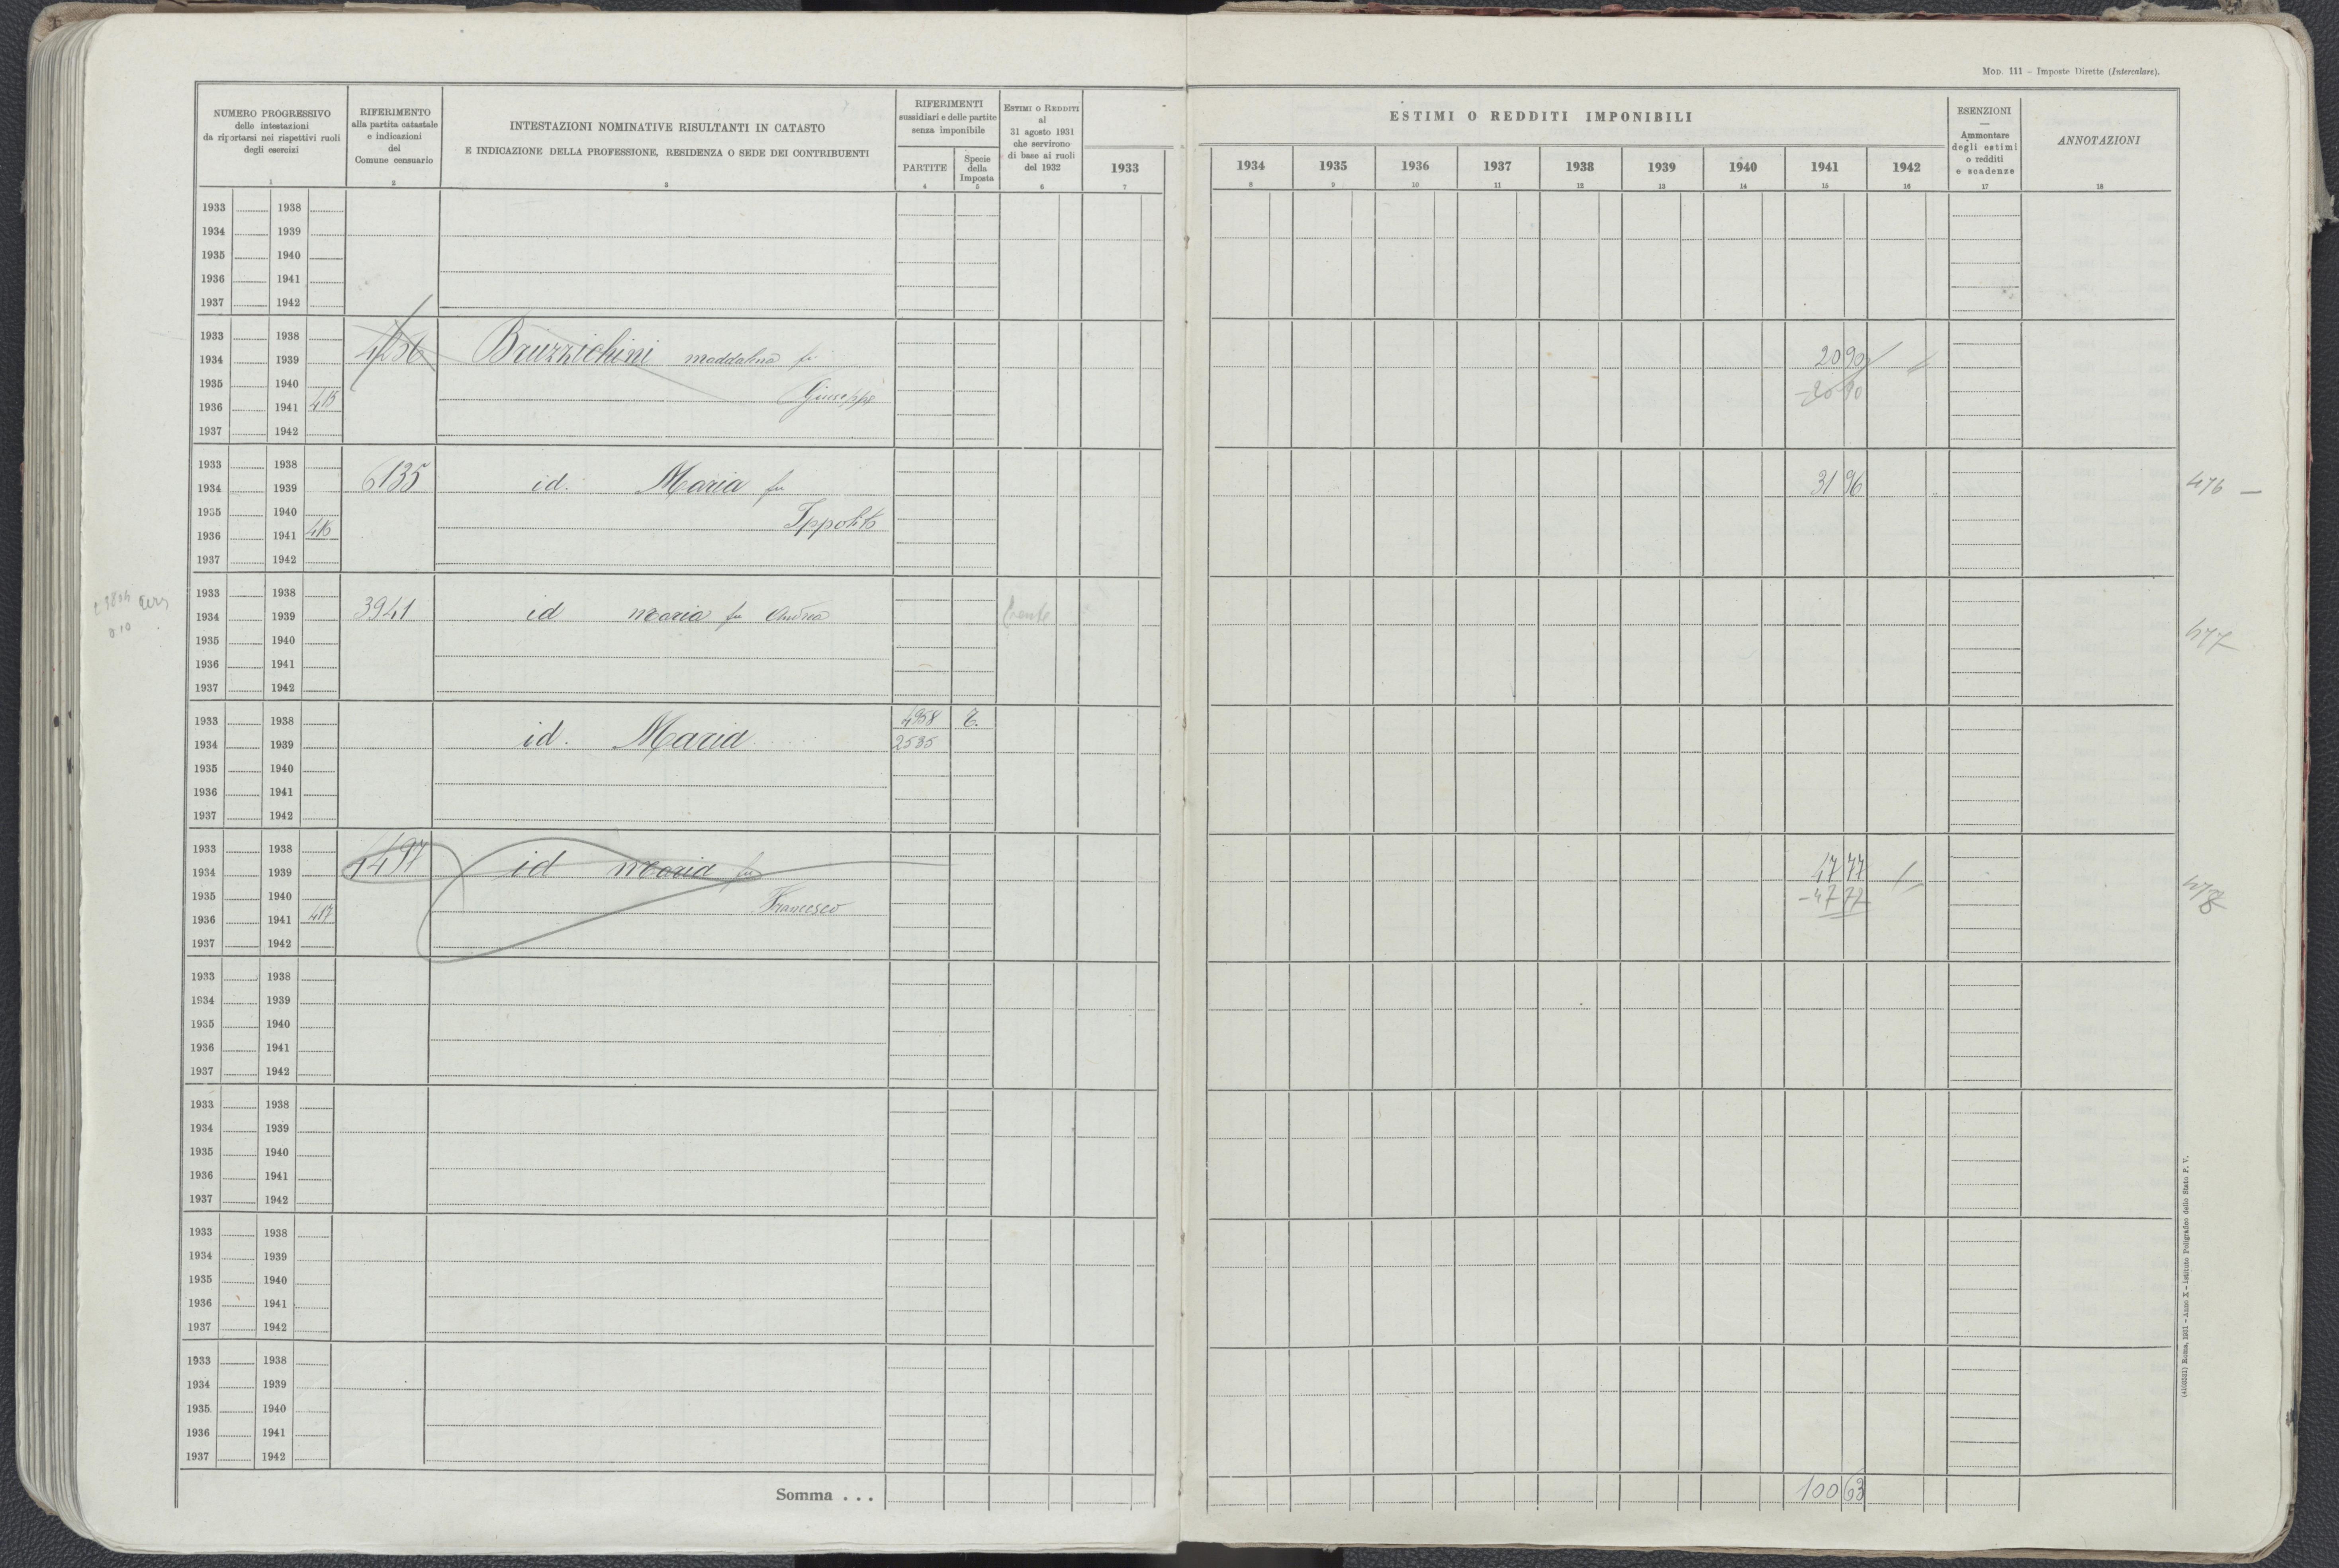 MOD. 111 – Imposte Dirette (Intercalare).
NUMERO PROGRESSIVO
delle intestazioni
da riportarsi nei rispettivi ruoli
degli esercizi
1
RIFERIMENTO
alla partita catastale
e indicazioni
del
Comune censuario
2
INTESTAZIONI NOMINATIVE RISULTANTI IN CATASTO
E INDICAZIONE DELLA PROFESSIONE, RESIDENZA O SEDE DEI CONTRIBUENTI
3
RIFERIMENTI
sussidiari e delle partite
senza imponibile
PARTITE
4
Specie
della
Imposta
5
ESTIMI O REDDITI
al
31 agosto 1931
che servirono
di base ai ruoli
del 1932
6
1933
7
ESTIMI O REDDITI IMPONIBILI
1934 1935 1936 1937 1938 1939 1940 1941 1942
8 9 10 11 12 13 14 15 16
ESENZIONI
—
Ammontare
degli estimi
o redditi
e scadenze
17
ANNOTAZIONI
18
1933 1938
1934 1939
1935 1940
1936 1941
1937 1942
1933 1938
1934 1939 4256 Bruzzichini Maddalena fu 20 90
1935 1940 Giuseppe -20 90
1936 1941 415
1937 1942
1933 1938
1934 1939 6135 id. Maria fu 31 96 476 —
1935 1940 Ippolito
1936 1941 416
1937 1942
1933 1938
1934 1939 3941 id Maria fu Andrea 477
1935 1940
1936 1941
1937 1942
1933 1938 4958 T.
1934 1939 id. Maria 2535
1935 1940
1936 1941
1937 1942
1933 1938
1934 1939 4497 id Maria fu 47 77
1935 1940 Francesco -47 77 478
1936 1941 417
1937 1942
1933 1938
1934 1939
1935 1940
1936 1941
1937 1942
1933 1938
1934 1939
1935 1940
1936 1941
1937 1942
1933 1938
1934 1939
1935 1940
1936 1941
1937 1942
1933 1938
1934 1939
1935 1940
1936 1941
1937 1942
Somma . . . 100 63
Roma, 1931 – Anno X – Istituto Poligrafico dello Stato P. V.